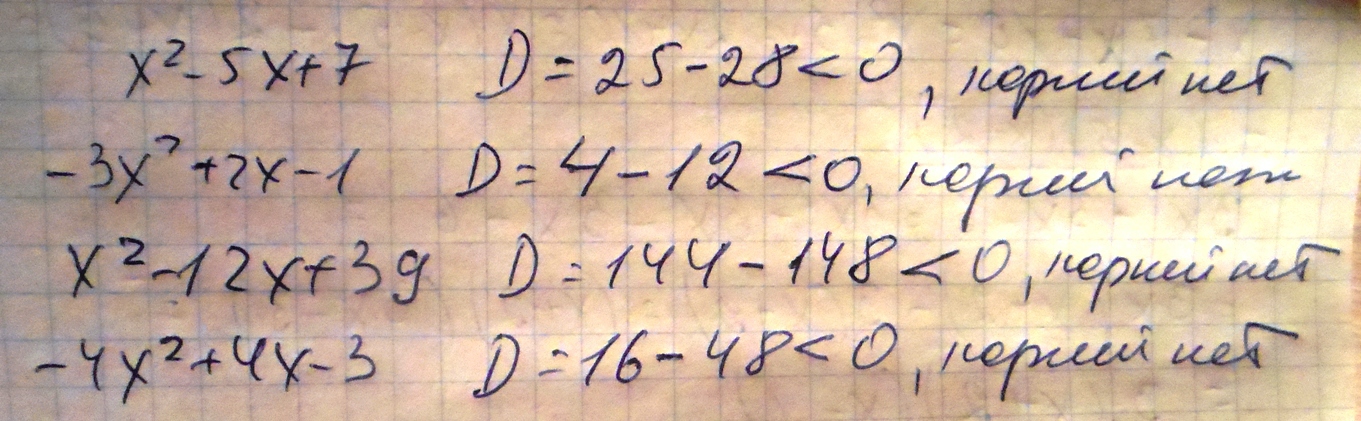 x² - 5x + 7 D = 25 - 28 < 0, корней нет
-3x² + 2x - 1 D = 4 - 12 < 0, корней нет
x² - 12x + 39 D = 144 - 148 < 0, корней нет
-4x² + 4x - 3 D = 16 - 48 < 0, корней нет